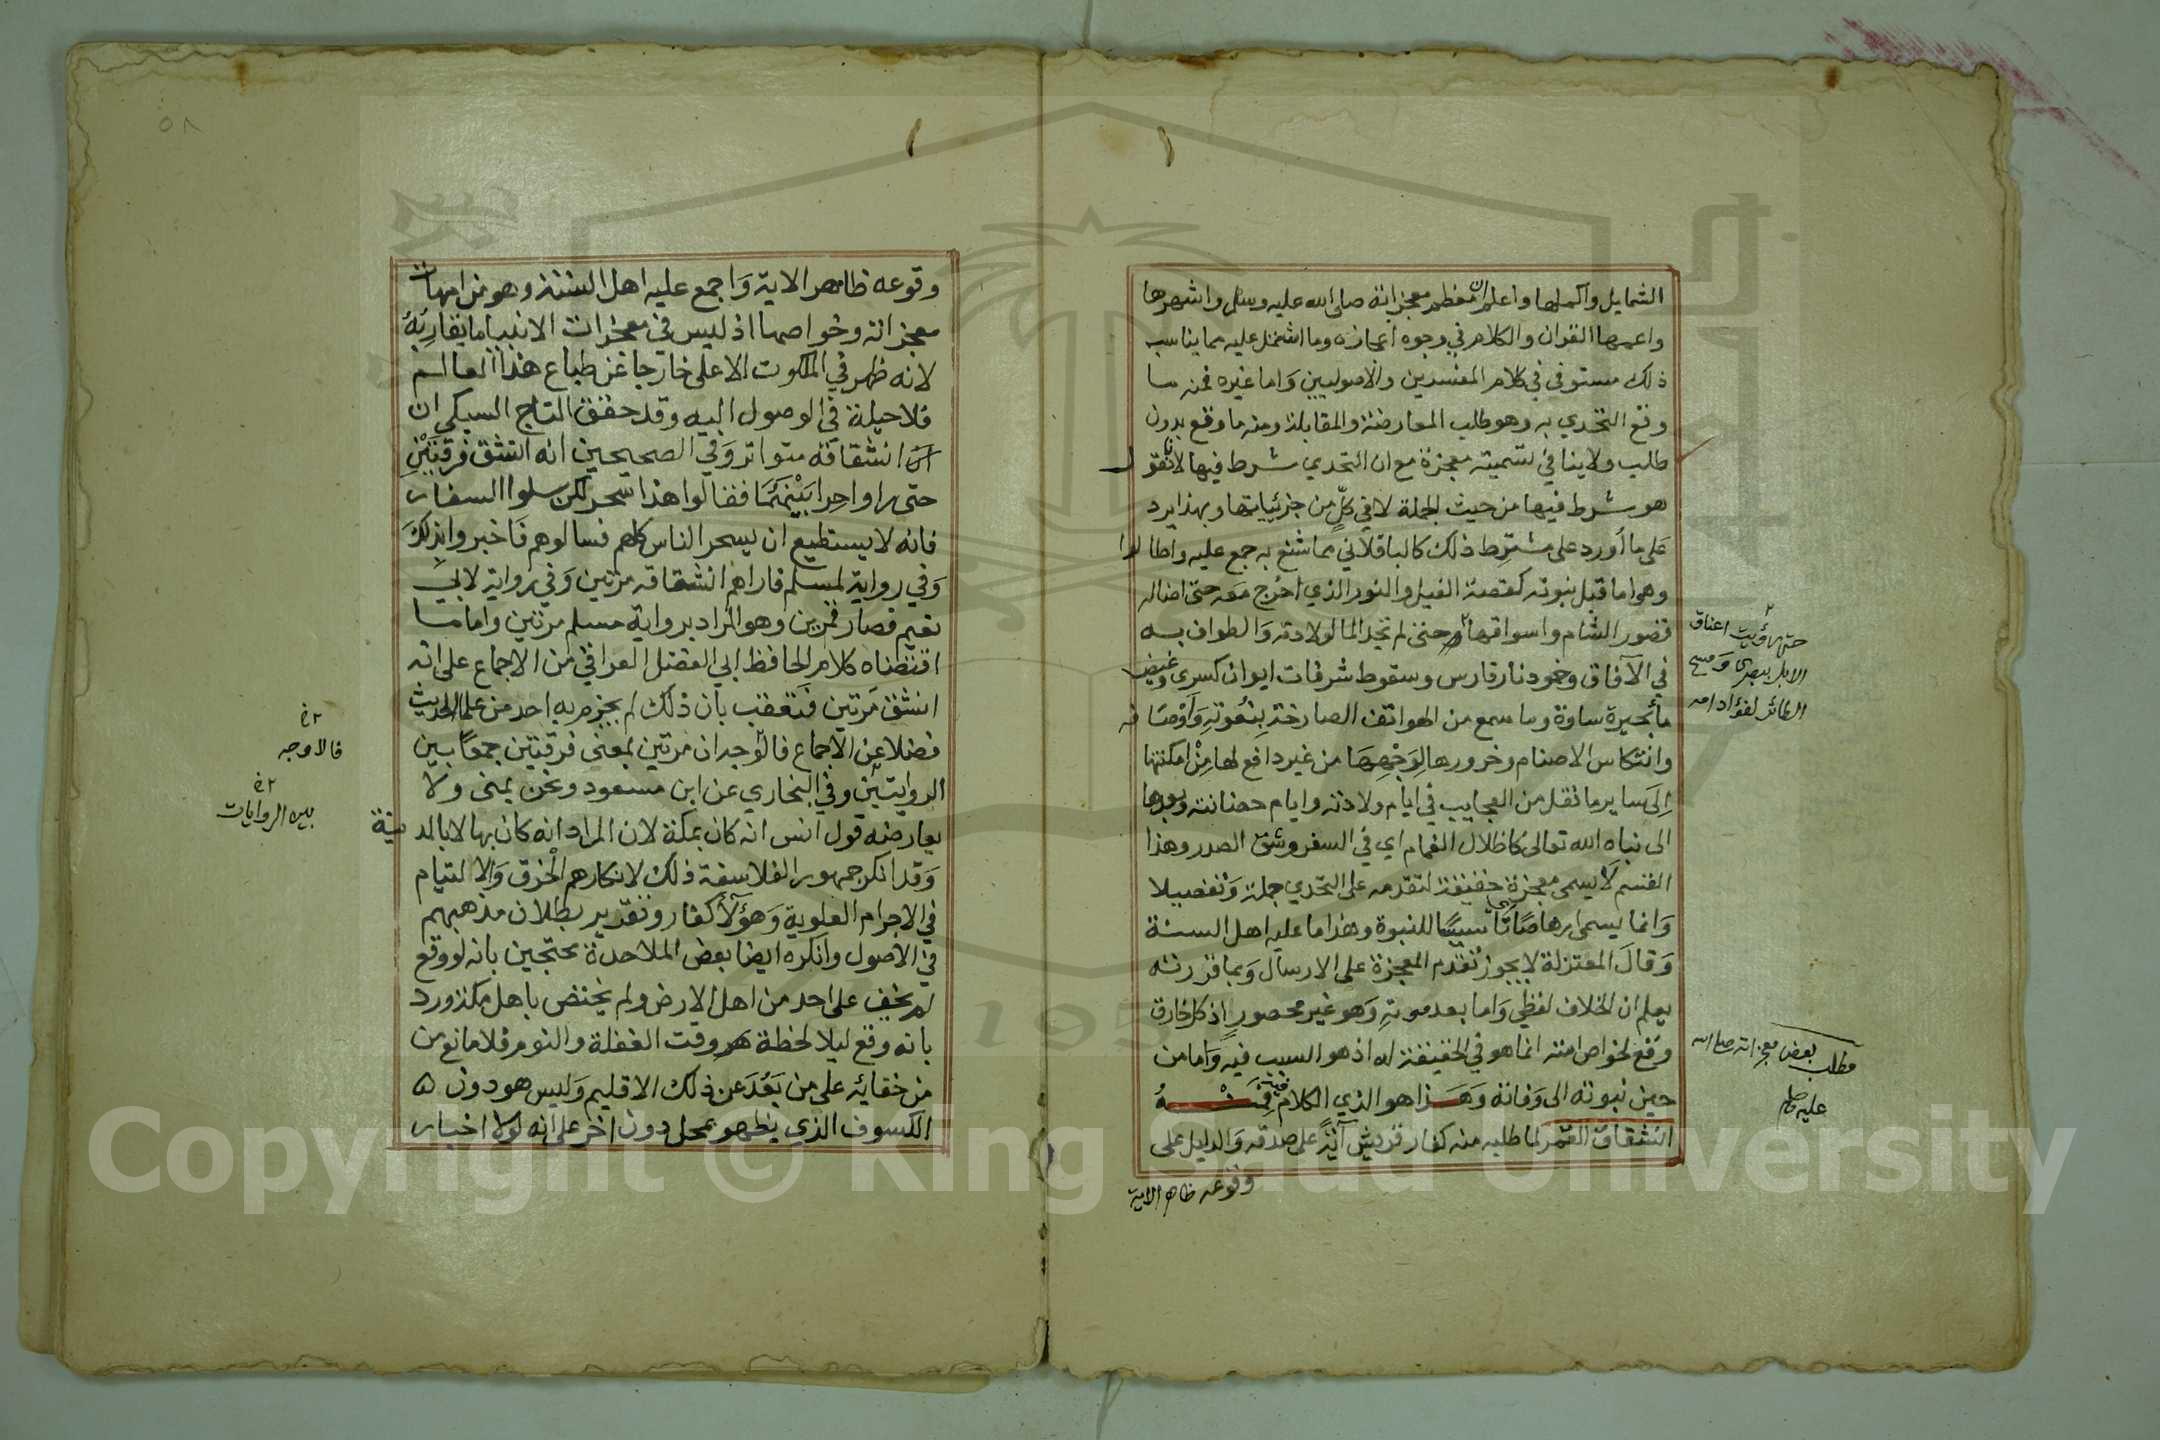 الشمايل واكملها واعلم ان معظم معجزاته صلى الله عليه وسلم واشهرها
واعمها القران والكلام في وجوه اعجازه وما اشتمل عليه مما يناسب
ذلك مستوفى في كلام المفسرين والاصوليين واما غيره فمنه ما
وقع التحدي به وهو طلب المعارضة والمقابلة ومنه ما وقع بدون
طلب ولا ينافي تسميته معجزة مع ان التحدي شرط فيها لانا نقول
هو شرط فيها من حيث الجملة لا في كل من جزئياتها وبهذا يرد
على ما اورد على مشترط ذلك كالباقلاني مما شنع به جمع عليه واطالوا
وهو اما قبل نبوته كقصة الفيل والنور الذي اخرج معه حتى اضاله
قصور الشام واسواقها حتى لم تجد الما لولادته والطواف به
في الآفاق وخمود نار فارس وسقوط شرفات ايوان كسرى وغيض
ما بحيرة ساوة وما سمع من الهواتف الصارخة بنعوته واوصافه
وانتكاس الاصنام وخرورها لوجهها من غير دافع لها من امكنتها
الى ساير ما نقل من العجايب في ايام ولادته وايام حضانته وبعدها
الى نباه الله تعالى كاظلال الغمام اي في السفر وشق الصدر وهذا
القسم لا يسمى معجزة حقيقة لتقدمه على التحدي جملة وتفصيلا
وانما يسمى ارهاصا تاسيسا للنبوة وهذا ما عليه اهل السنة
وقال المعتزلة لا يجوز تقدم المعجزة على الارسال وبما قررته
يعلم ان الخلاف لفظي واما بعد موته وهو غير محصور اذ كل خارق
وقع لخواص امته انما هو في الحقيقة له اذ هو السبب فيه واما من
حين نبوته الى وفاته وهذا هو الذي الكلام فيه فمنه
انشقاق القمر لما طلبه منه كفار قريش آية على صدقه والدليل على
وقوعه ظاهر الاية
حتى رؤيت اعناق
الابل ببصرى ومسح
الطائر لفؤاد امه
مطلب بعض معجزاته صلى الله
عليه وسلم
٥٨
وقوعه ظاهر الاية واجمع عليه اهل السنة وهو من امهات
معجزاته وخواصها اذ ليس في معجزات الانبيا ما يقاربه
لانه ظهر في الملكوت الاعلى خارجا عن طباع هذا العالم
فلا حيلة في الوصول اليه وقد حقق التاج السبكي ان
انشقاقه متواتر وفي الصحيحين انه انشق فرقتين
حتى راوا حرا بينهما فقالوا هذا سحر لكن سلوا السفار
فانه لا يستطيع ان يسحر الناس كلهم فسالوهم فاخبروا بذلك
وفي رواية لمسلم فاراهم انشقاقه مرتين وفي رواية لابي
نعيم فصار قمرين وهو المراد برواية مسلم مرتين واما ما
اقتضاه كلام الحافظ ابي الفضل العراقي من الاجماع على انه
انشق مرتين فتعقب بان ذلك لم يجزم به احد من علما الحديث
فضلا عن الاجماع فالوجد ان مرتين بمعنى فرقتين جمعا بين
الروايتين وفي البخاري عن ابن مسعود ونحن بمنى ولا
يعارضه قول انس انه كان بمكة لان المراد انه كان بها لا بالمدينة
وقد انكر جمهور الفلاسفة ذلك لانكارهم الخرق والالتيام
في الاجرام العلوية وهؤلآ كفار وتقدير بطلان مذهبهم
في الاصول وانكره ايضا بعض الملاحدة محتجين بانه لو وقع
لم يخف على احد من اهل الارض ولم يختص باهل مكة ورد
بانه وقع ليلا لحظة وقت الغفلة والنوم فلا مانع من
من خفائه على من بعد عن ذلك الاقليم وليس هو دون
الكسوف الذي يظهر بمحل دون اخر على انه لولا اخبار
فالاوجه
بين الروايات
Copyright © King Saud University
195